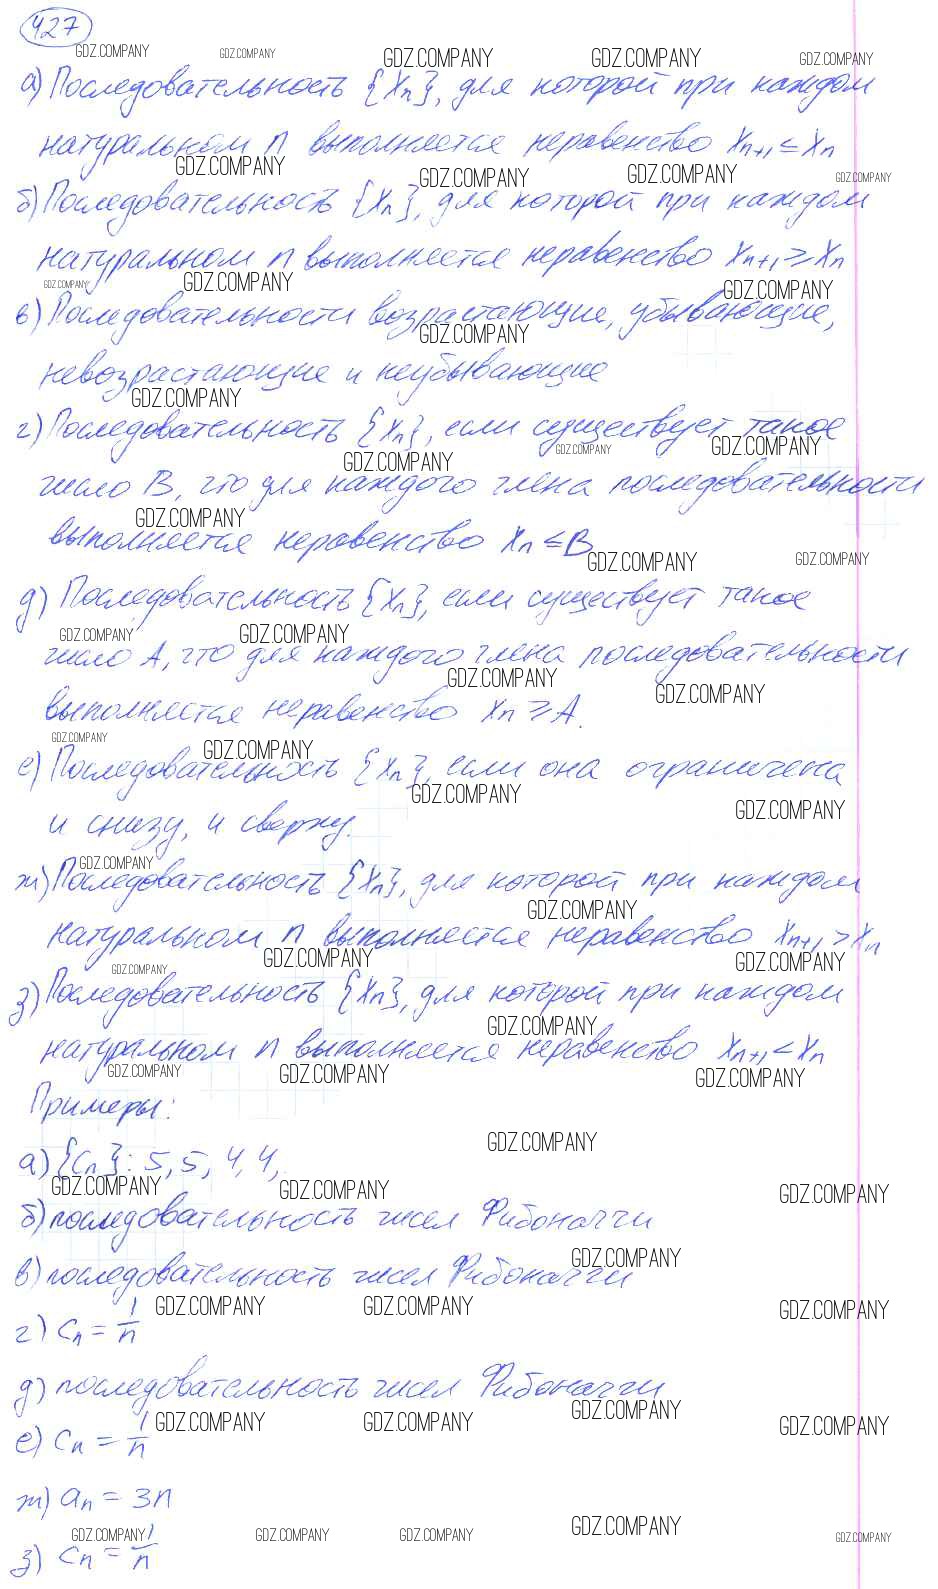 427
а) Последовательность {Xn}, для которой при каждом
натуральном n выполняется неравенство Xn+1 ≤ Xn
б) Последовательность {Xn}, для которой при каждом
натуральном n выполняется неравенство Xn+1 ≥ Xn
в) Последовательности возрастающие, убывающие,
невозрастающие и неубывающие
г) Последовательность {Xn}, если существует такое
число B, что для каждого члена последовательности
выполняется неравенство Xn ≤ B
д) Последовательность {Xn}, если существует такое
число A, что для каждого члена последовательности
выполняется неравенство Xn ≥ A.
е) Последовательность {Xn}, если она ограничена
и снизу, и сверху.
ж) Последовательность {Xn}, для которой при каждом
натуральном n выполняется неравенство Xn+1 > Xn
з) Последовательность {Xn}, для которой при каждом
натуральном n выполняется неравенство Xn+1 < Xn
Примеры:
а) {Cn}: 5, 5, 4, 4,
б) последовательность чисел Фибоначчи
в) последовательность чисел Фибоначчи
г) Cn = 1/n
д) последовательность чисел Фибоначчи
е) Cn = 1/n
ж) an = 3n
з) Cn = 1/n
GDZ.COMPANY